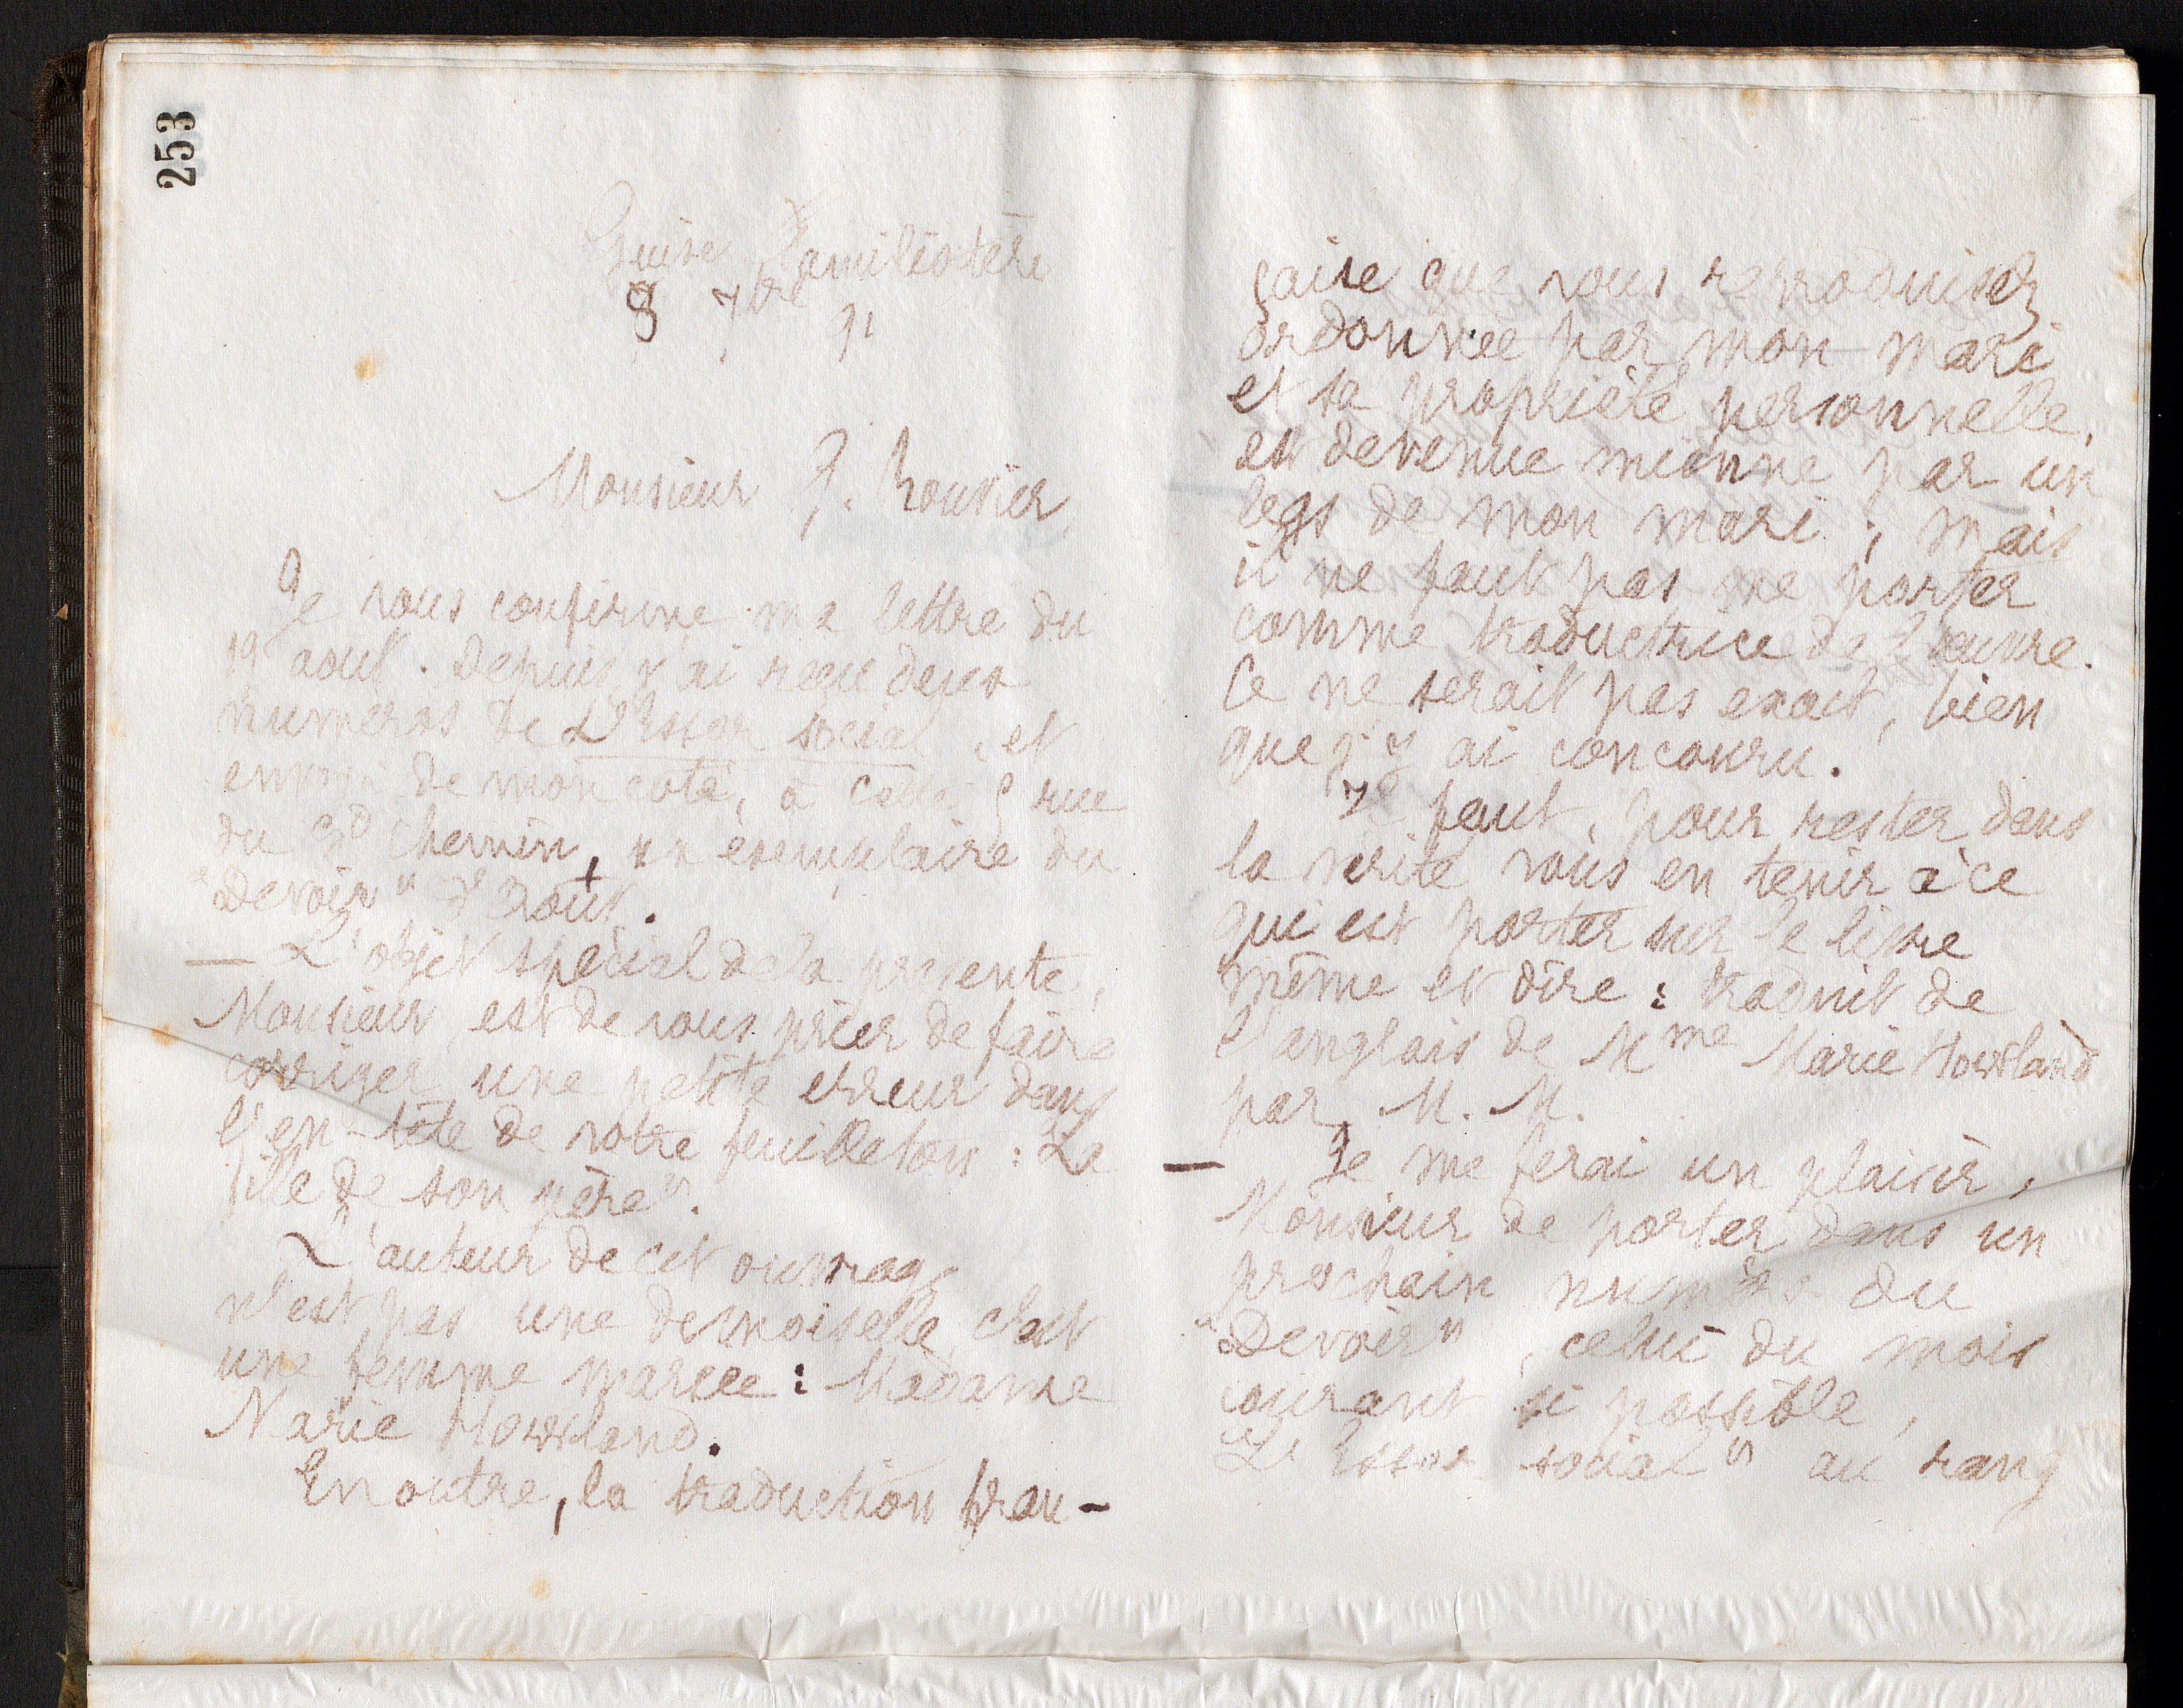 253
Guise Familistère
8 7bre 91
Monsieur J. Rouvier,
Je vous confirme ma lettre du
19 aout. Depuis j'ai reçu deux
numéros de L'Essor social, et
envoyé de mon coté, à rue
du Gd Chemin, un exemplaire du
"Devoir" d'aout.
— L'objet spécial de la présente,
Monsieur, est de vous prier de faire
corriger une petite erreur dans
l'en-tête de votre feuilleton : La
fille de son père".
L'auteur de cet ouvrage
n'est pas une demoiselle, c'est
une femme mariée : Madame
Marie Howland.
En outre, la traduction fran-
çaise que vous reproduisez
ordonnée par mon mari
et sa propriété personnelle,
est devenue mienne par un
legs de mon mari ; mais
il ne faut pas me porter
comme traductrice de l'œuvre.
Ce ne serait pas exact, bien
que j'y ai concouru.
Il faut, pour rester dans
la vérité vous en tenir à ce
qui est porter sur le livre
même et dire : traduit de
l'anglais de Mme Marie Howland
par M. M.
— Je me ferai un plaisir,
Monsieur de porter dans un
prochain numéro du
"Devoir", celui du mois
courant si possible,
"L'Essor social" au rang